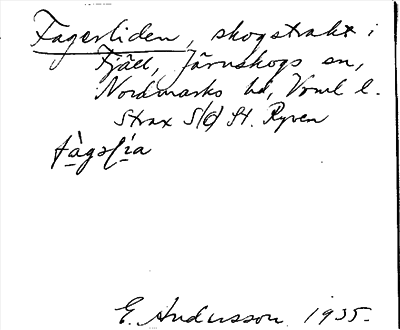 Fagerliden, skogstrakt i
Fjäll, Järnskogs sn,
Nordmarks hd, Vrml l.
Strax S(d) St. Ryven
E. Andersson 1935.